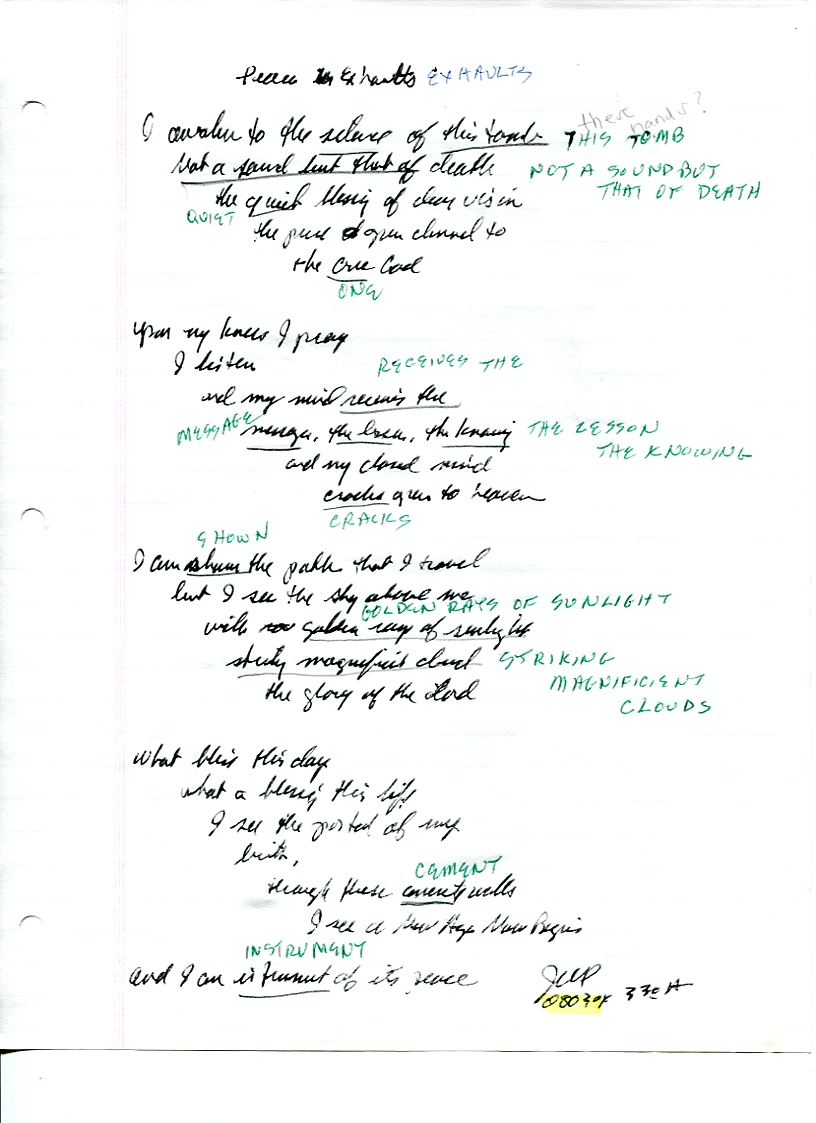 Peace Exhaults EXHAULTS
there hands?
I awaken to the silence of this tomb THIS TOMB
Not a sound but that of death NOT A SOUND BUT
THAT OF DEATH
the quiet blessing of deep vision
QUIET
the pure open channel to
the one God
ONE
upon my knees I pray
I listen RECEIVES THE
and my mind receives the
MESSAGE message, the lesson, the knowing THE LESSON
THE KNOWING
and my closed mind
cracks open to heaven
CRACKS
SHOWN
I am shown the path that I travel
but I see the sky above me
GOLDEN RAYS OF SUNLIGHT
with golden rays of sunlight
striking magnificent clouds STRIKING
MAGNIFICIENT
the glory of the Lord
CLOUDS
what bliss this day
what a blessing this life
I see the portal of my
birth,
CEMENT
through these cement walls
I see a New Age Now Begins
INSTRUMENT
and I am instrument of its peace JWP
080304 330A